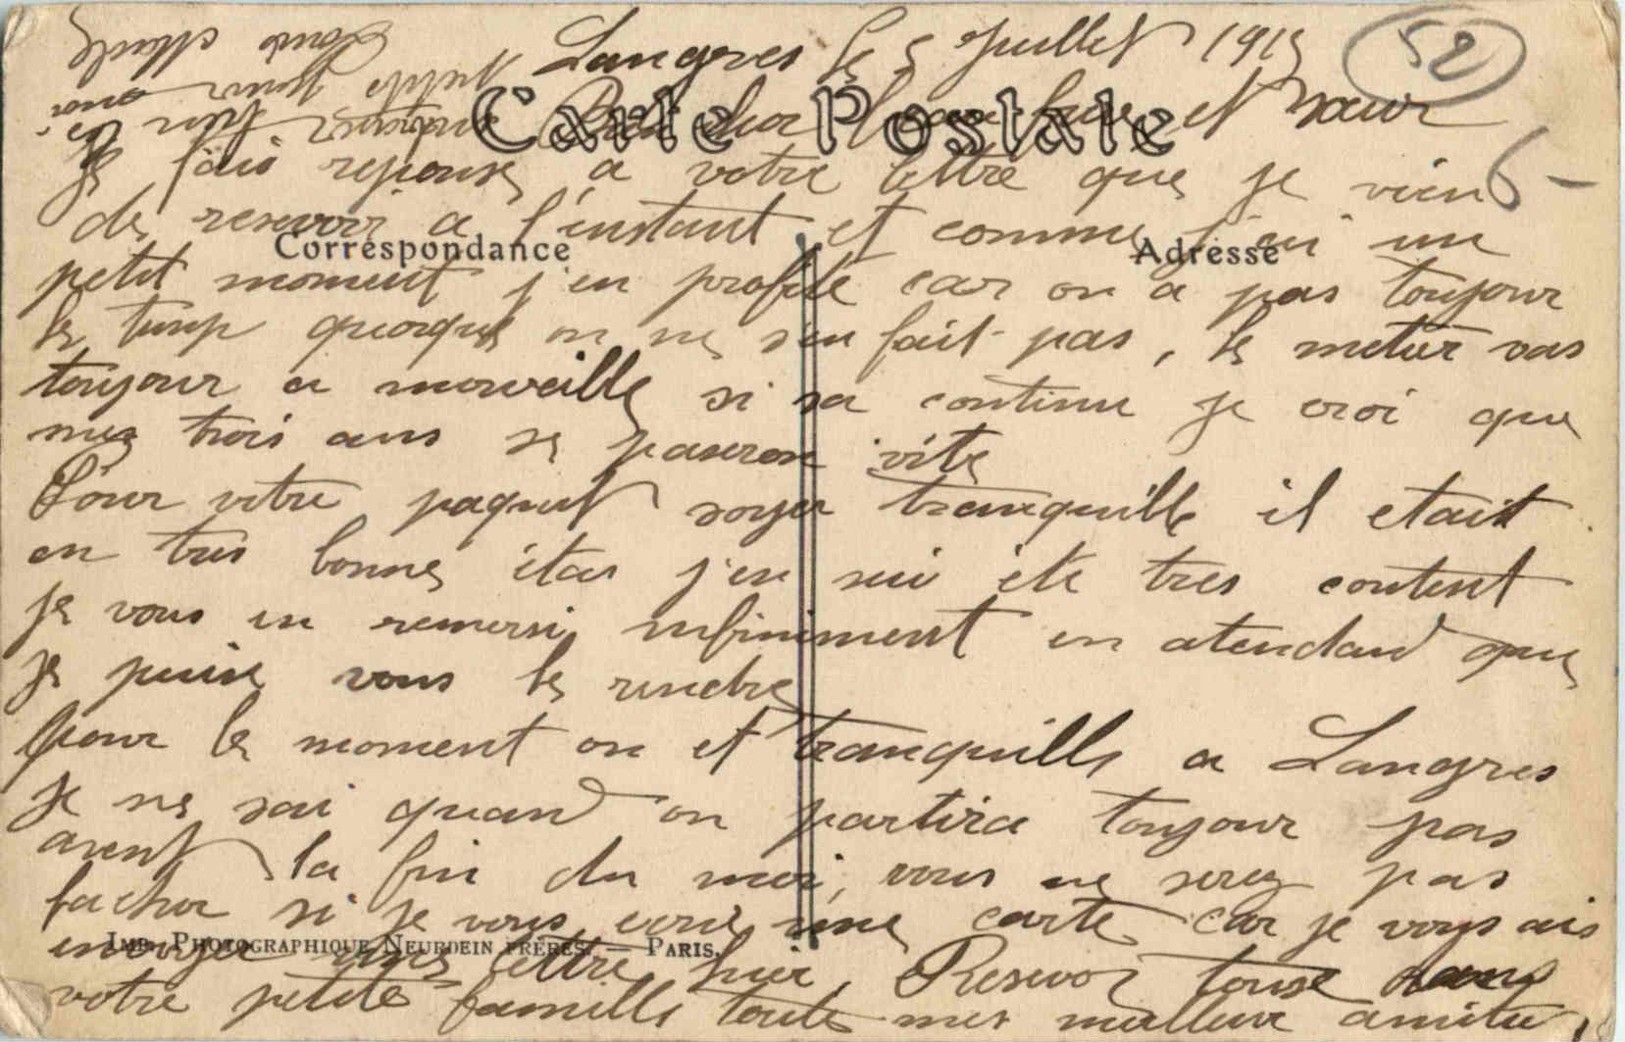 Langres le 5 Juillet 1915
52
Carte Postale
Bien cher beau frère et sœur
Je fais reponse a votre lettre que je vien
6 -
de resevoir a l'instant et comme j'ai un
Correspondance
Adresse
petit moment j'en profite car on a pas toujour
le temp quoique on ne s'en fait pas, le metier vas
toujour a merveille si sa continu je croi que
mes trois ans se passeron vite
Pour votre paquet soyer tranquille il etait
en tres bonne état j'en sui été tres content
je vous en remersie infiniment en atendand que
je puise vous le rendre
pour le moment on et tranquille a Langres
je ne sai quand on partira toujour pas
avent la fin du moi, vous ne serez pas
facher si je vous ecris une carte car je vous ais
envoyer une lettre hier, Resevoi touse dans
Imp. Photographique Neurdein frères. — Paris.
votre petite famille toute mes meilleur amitié,